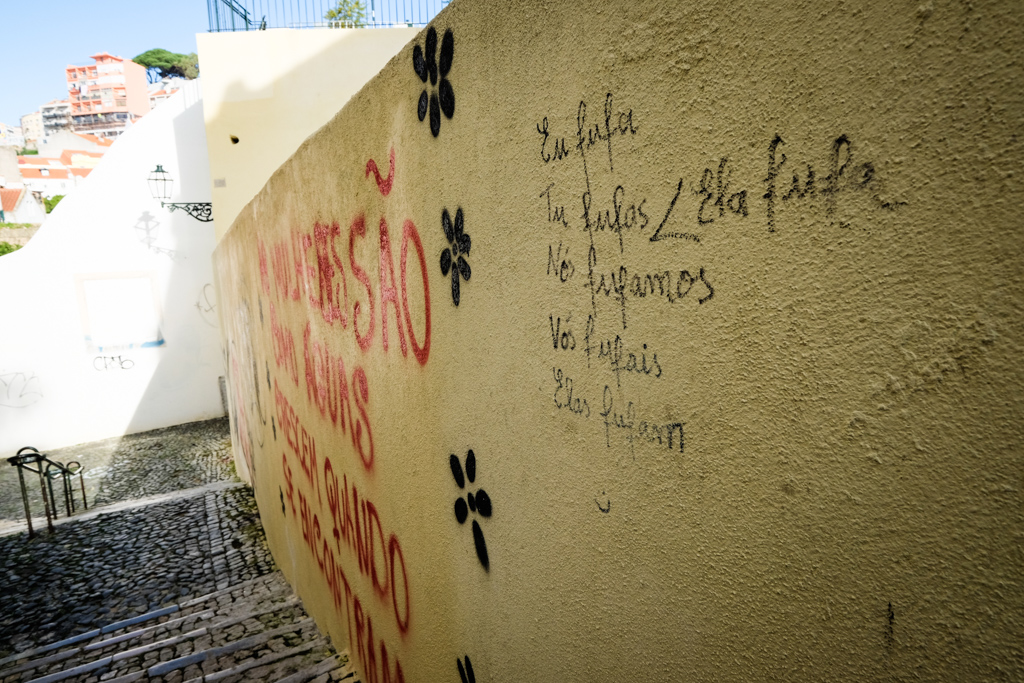 MULHERES SÃO
COMO ÁGUAS
CRESCEM QUANDO
SE ENCONTRAM
Eu fufa
Tu fufas / Ela fufa
Nós fufamos
Vós fufais
Elas fufam